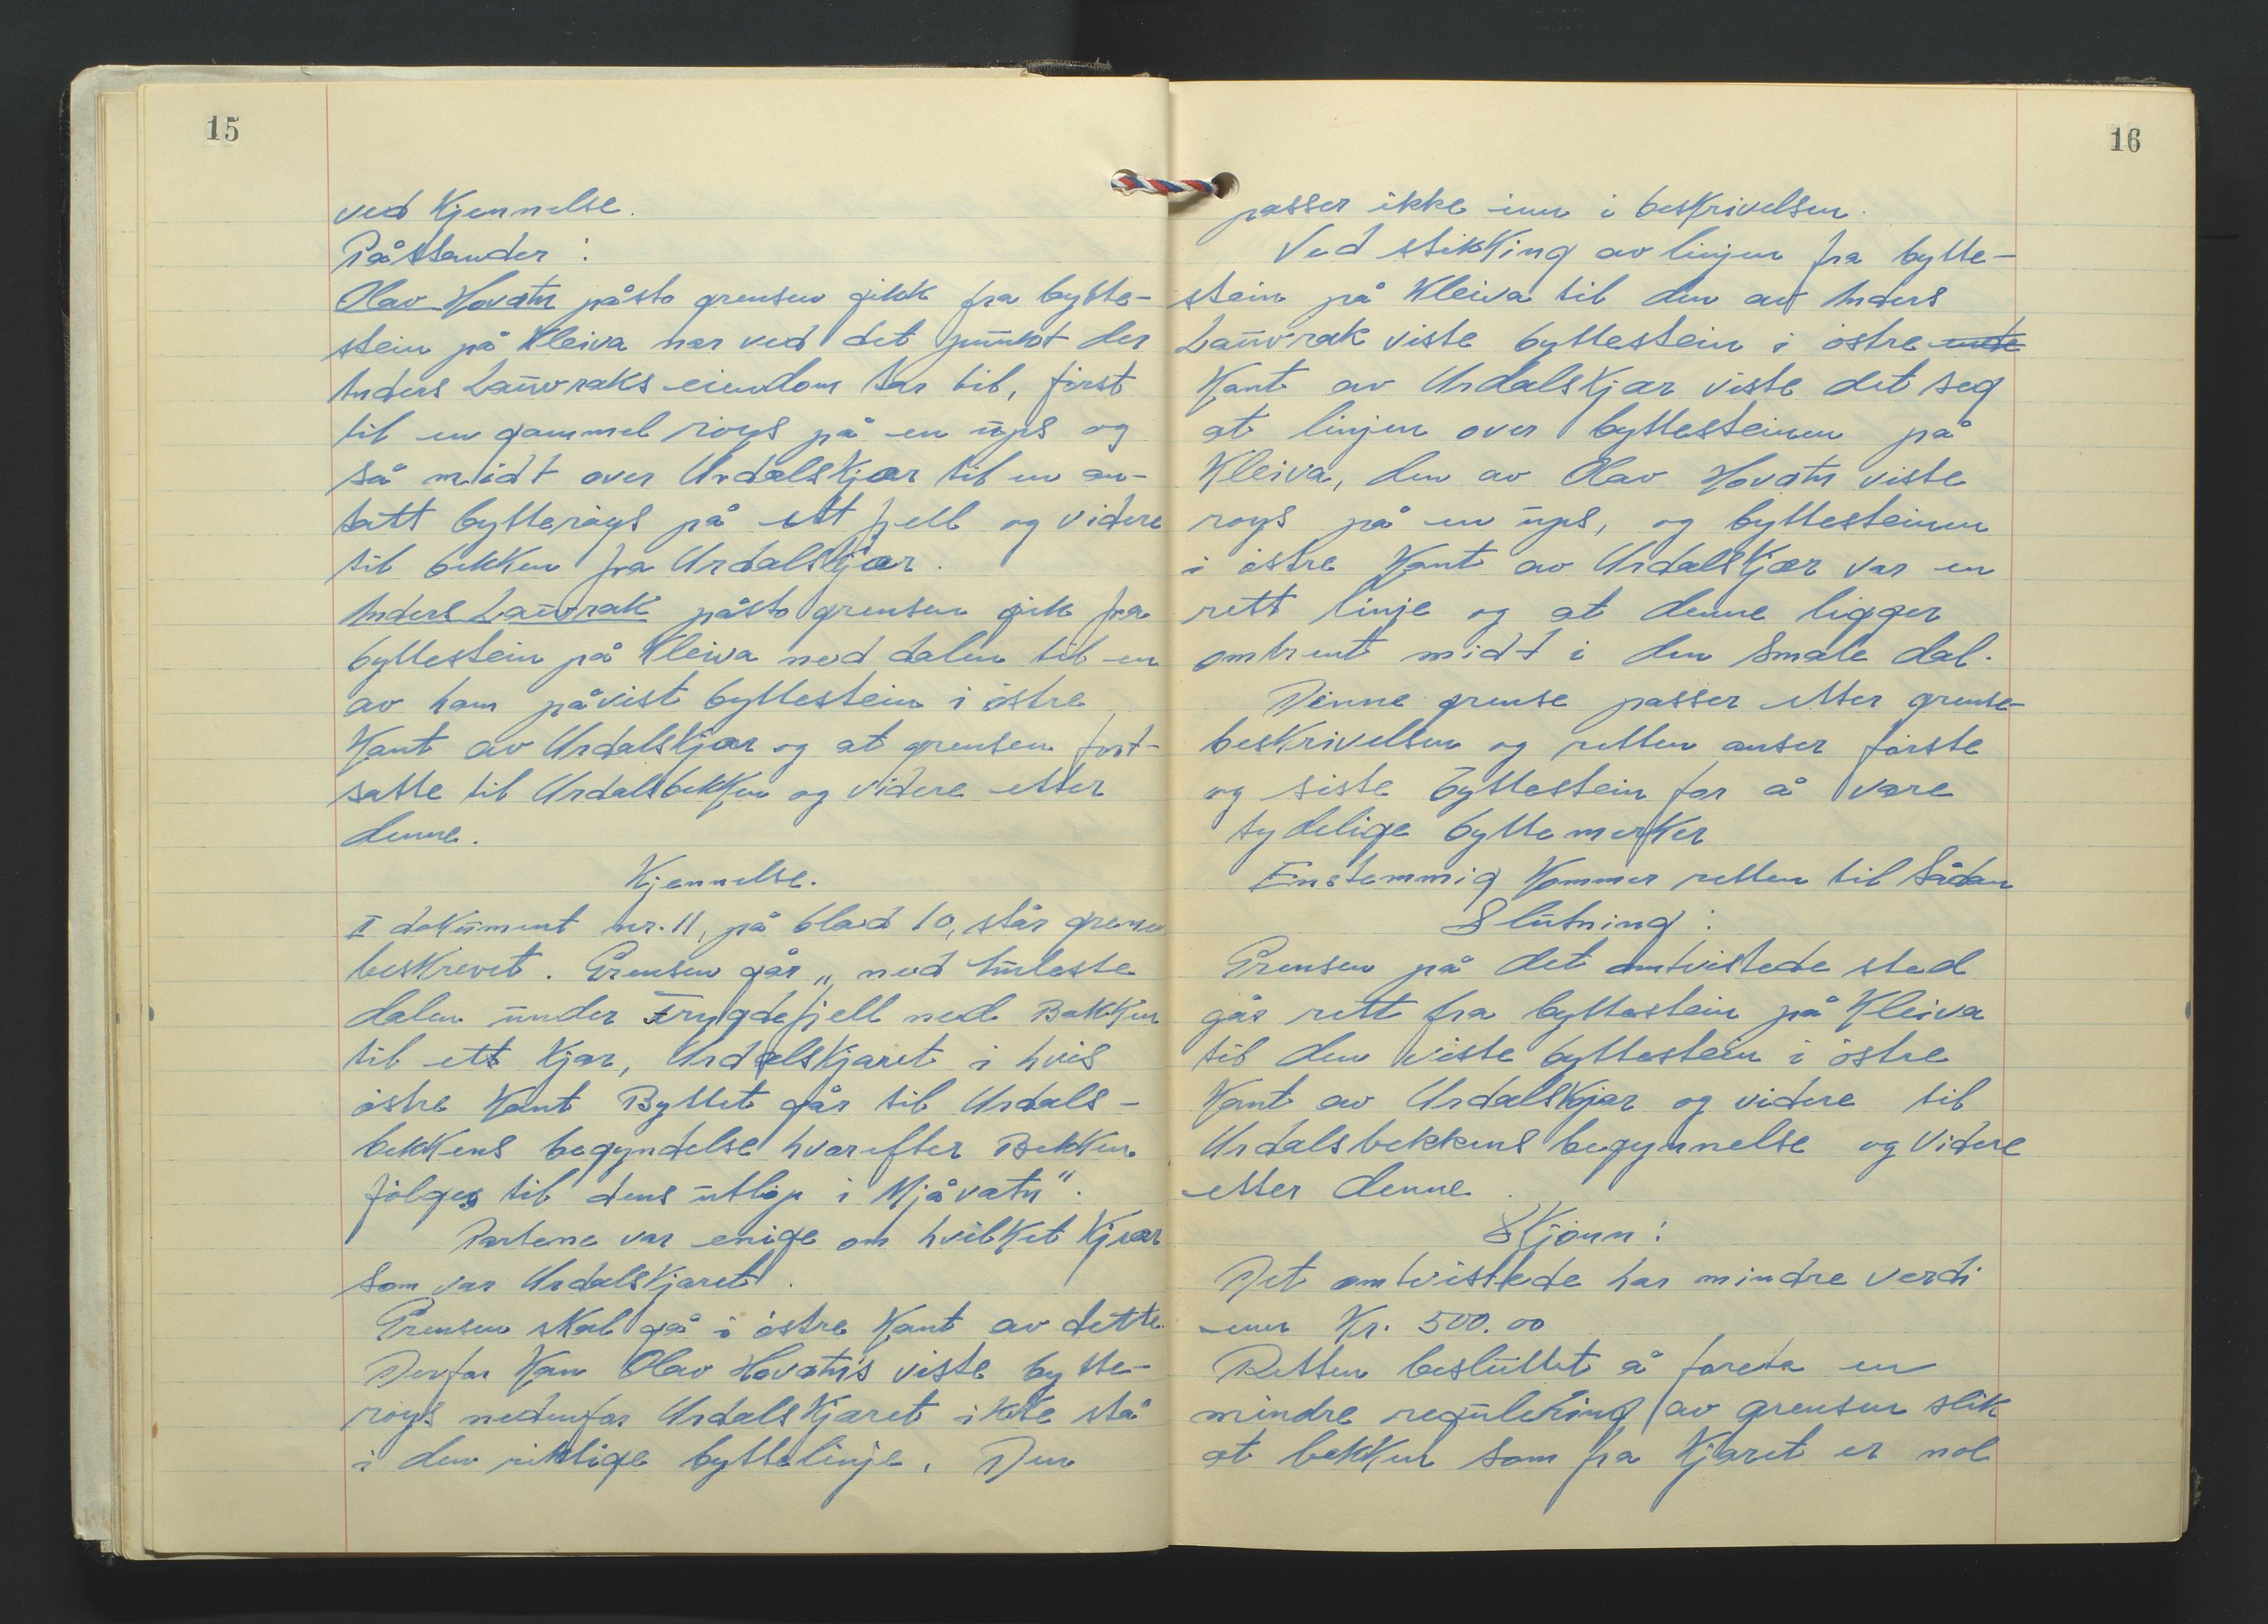 15
ved Kjennelse.
Påstander :
Olav Hovatn påsto grensen gikk fra bytte-
stein på Kleiva nær ved det punkt der
Anders Lauvraks eiendom tar til, först
til en gammel röys på en ups og
så midt over Urdalskjær til en an-
tatt bytteröys på ett fjell og videre
til bekken fra Urdalskjær.
Anders Lauvrak påsto grensen gik fra
byttestein på Kleiva ned dalen til en
av ham påvist byttestein i östre
Kant av Urdalskjær og at grensen fort-
satte til Urdalsbekken og videre etter
denne.
Kjennelse.
I dokument nr. 11, på blad 10, står grensen
beskrevet. Grensen går „ ned
dalen under Trygdefjell ned Bakken
til ett Kjær, Urdalskjæret i hvis
östre Kant Byttet går til Urdals-
bekkens begyndelse hvorefter Bekken
fölges til dens utlöp i Mjåvatn".
Partene var enige om hvilket Kjær
som var Urdalskjæret.
Grensen skal gå i östre Kant av dette.
Derfor Kan Olav Hovatn's viste bytte-
röys nedenfor Urdalskjæret ikke stå
i den riktige byttelinje. Den
16
passer ikke inn i beskrivelsen.
Ved stikking av linjen fra bytte-
stein på Kleiva til den av Anders
Lauvrak viste byttestein i östre ende
Kant av Urdalskjær viste det seg
at linjen over byttesteinen på
Kleiva, den av Olav Hovatn viste
röys på en ups, og byttesteinen
i östre Kant av Urdalskjær var en
rett linje og at denne ligger
omtrent midt i den smale dal.
Denne grense passer etter grense-
beskrivelsen og retten anser förste
og siste byttestein for å være
tydelige byttemerker
Enstemmig Kommer retten til sådan
Slutning :
Grensen på det omtvistede sted
går rett fra byttestein på Kleiva
til den viste byttestein i östre
Kant av Urdalskjær og videre til
Urdalsbekkens begynnelse og videre
etter denne.
Skjönn :
Det omtvistede har mindre verdi
enn Kr. 500.00
Retten besluttet å foreta en
mindre regulering av grensen slik
at bekken som fra Kjæret er